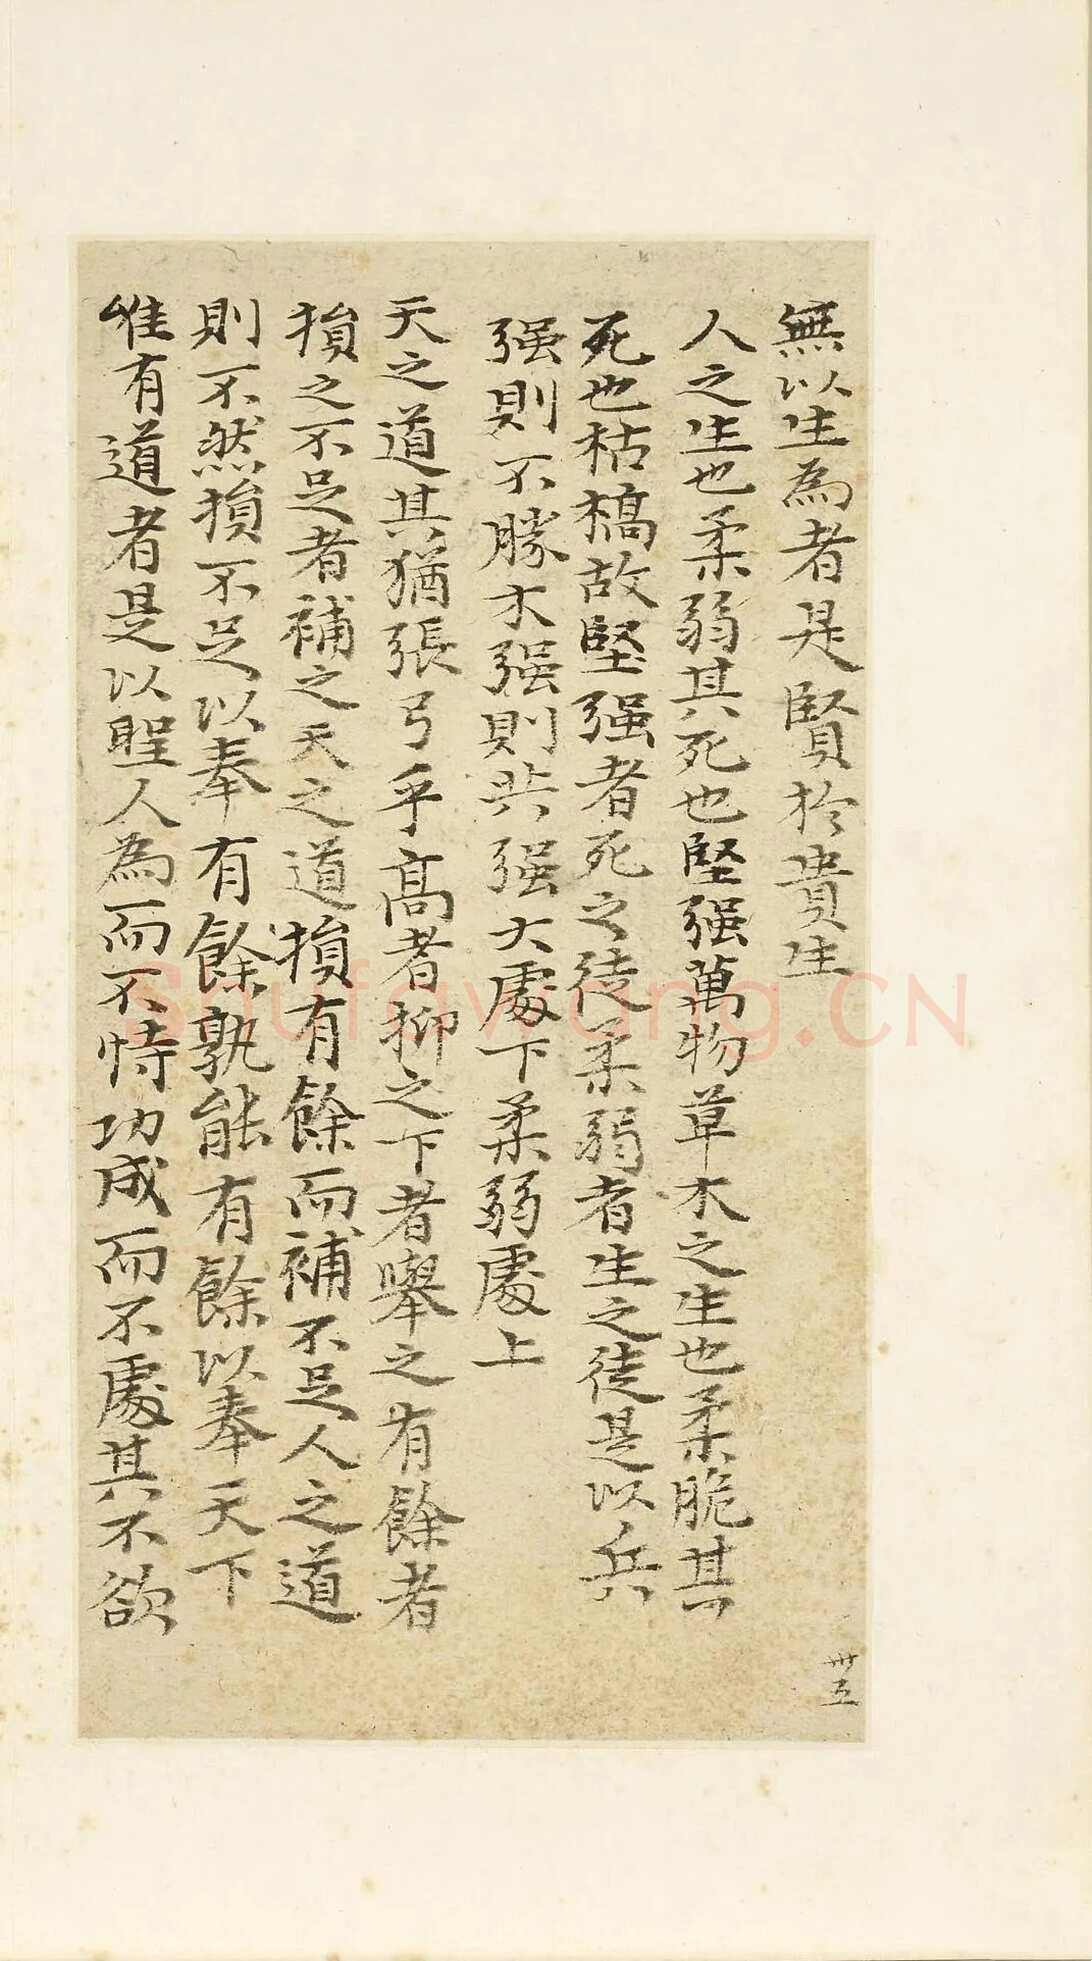 無以生為者是賢於貴生
人之生也柔弱其死也堅强萬物草木之生也柔脆其
死也枯槁故堅强者死之徒柔弱者生之徒是以兵
强則不勝木强則共强大處下柔弱處上
天之道其猶張弓乎高者抑之下者舉之有餘者
損之不足者補之天之道損有餘而補不足人之道
則不然損不足以奉有餘孰能有餘以奉天下
唯有道者是以聖人為而不恃功成而不處其不欲
卅五
Shufawang.CN